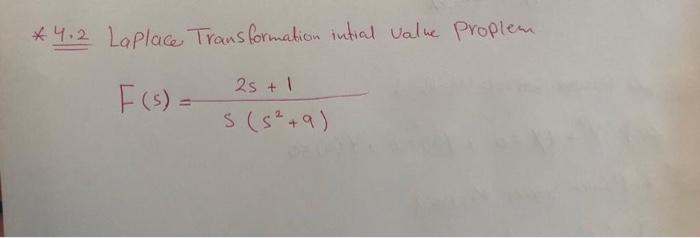 * 4.2 Laplace Transformation intial value proplem
F(s) = 2s + 1 / s (s² + 9)